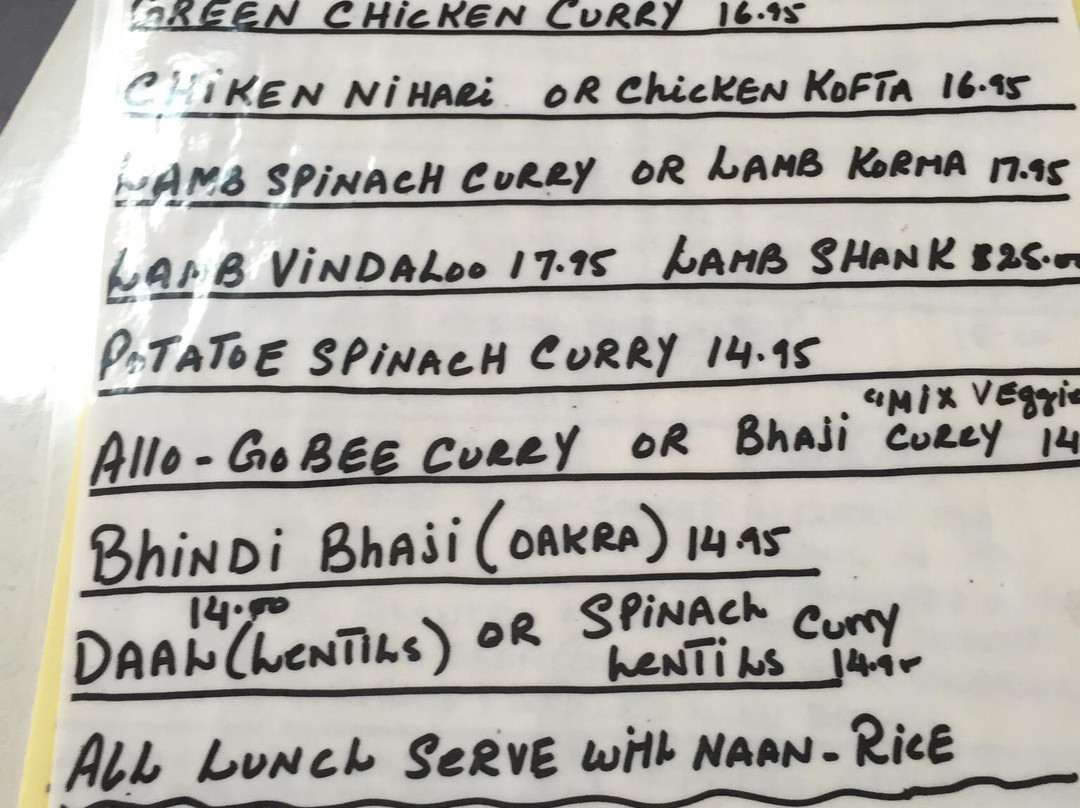 GREEN CHiCKEN CURRY 16.95
CHiKEN NiHARi OR ChicKEN KOFTA 16.95
LAMB SPiNACH CURRY OR LAMB KORMA 17.95
LAMB ViNDALOO 17.95 LAMB SHANK $25.00
POTATOE SPiNACH CURRY 14.95
"MiX VEggie
Allo-GoBEE CURRY OR Bhaji CURRY 14
BhiNDi Bhaji (OAKRA) 14.95
14.50 SPiNACh Curry
DAAL (LENTiLS) OR LENTiLS 14.95
ALL LUNCh SERVE WiTH NAAN-RiCE